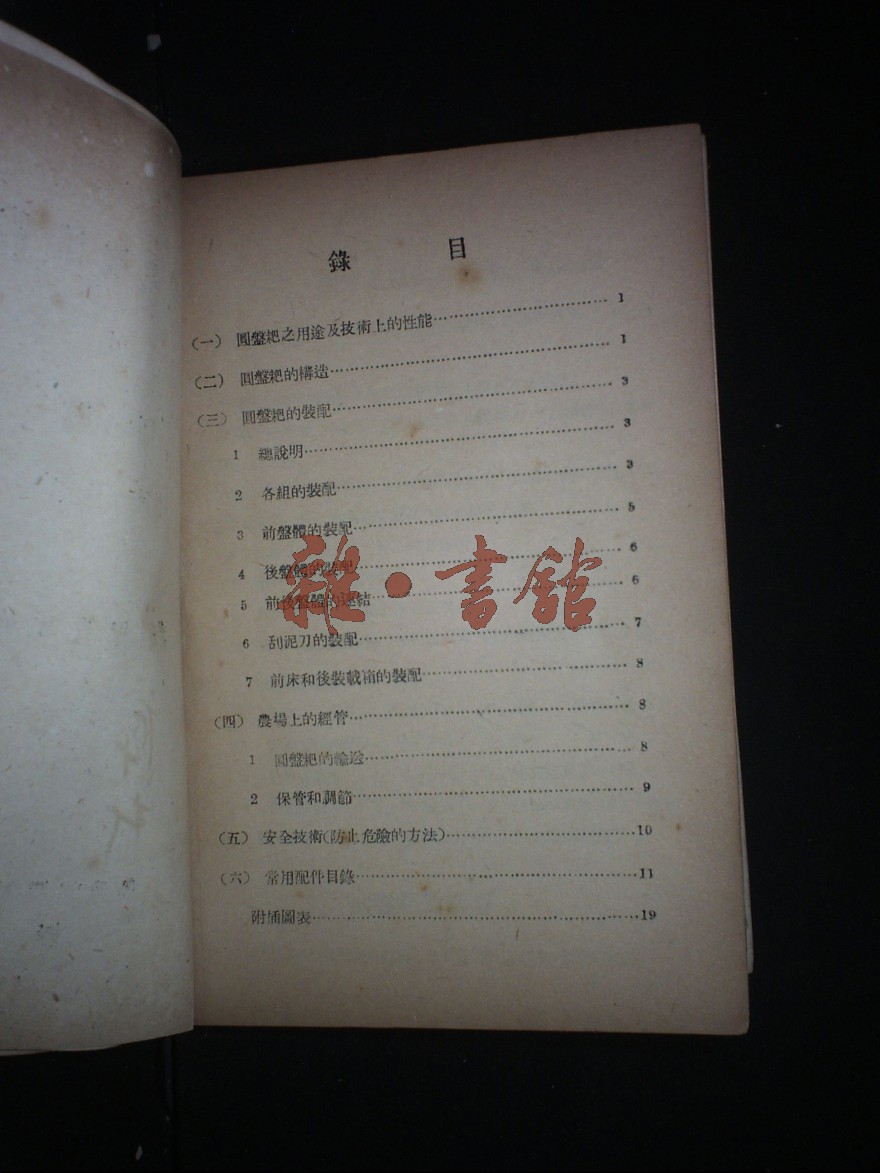 錄 目
(一) 圓盤耙之用途及技術上的性能…………………… 1
(二) 圓盤耙的構造…………………… 1
(三) 圓盤耙的裝配…………………… 3
1 總說明…………………… 3
2 各組的裝配…………………… 3
3 前盤體的裝配…………………… 5
4 後盤體的裝配…………………… 6
5 前後盤體的連結…………………… 6
6 刮泥刀的裝配…………………… 7
7 前床和後裝載箱的裝配…………………… 8
(四) 農場上的經管…………………… 8
1 圓盤耙的輸送…………………… 8
2 保管和調節…………………… 9
(五) 安全技術(防止危險的方法)……………………10
(六) 常用配件目錄……………………11
附插圖表……………………19
雜·書館